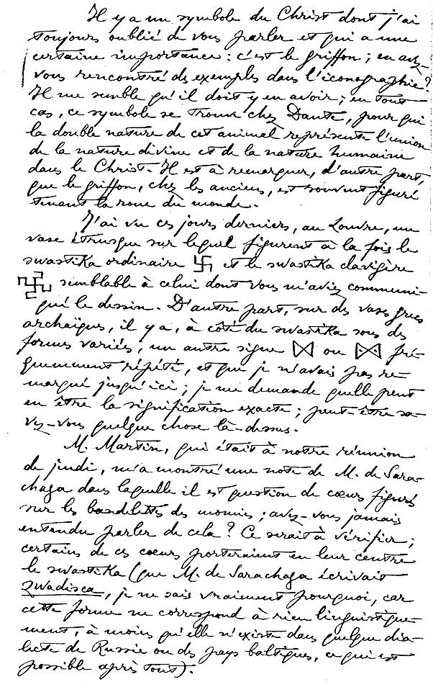 Il y a un symbole du Christ dont j'ai
toujours oublié de vous parler et qui a une
certaine importance : c'est le griffon ; en avez-
vous rencontré des exemples dans l'iconographie ?
Il me semble qu'il doit y en avoir ; en tout
cas, ce symbole se trouve chez Dante, pour qui
la double nature de cet animal représente l'union
de la nature divine et de la nature humaine
dans le Christ. Il est à remarquer, d'autre part,
que le griffon, chez les anciens, est souvent figuré
tenant la roue du monde.
J'ai vu ces jours derniers, au Louvre, un
vase étrusque sur lequel figurent à la fois le
swastika ordinaire 卐 et le swastika clavigère
semblable à celui dont vous m'aviez communi-
qué le dessin. D'autre part, sur des vases grecs
archaïques, il y a, à côté du swastika sous des
formes variées, un autre signe ou fré-
quemment répété, et que je n'avais pas re-
marqué jusqu'ici ; je me demande quelle peut
en être la signification exacte ; peut-être sa-
vez-vous quelque chose là-dessus.
M. Martin, qui était à notre réunion
de jeudi, m'a montré une note de M. de Sara-
chaga dans laquelle il est question de cœurs figurés
sur les bandelettes des momies ; avez-vous jamais
entendu parler de cela ? Ce serait à vérifier ;
certains de ces cœurs porteraient en leur centre
le swastika (que M. de Sarachaga écrivait
zwadisca, je ne sais vraiment pourquoi, car
cette forme ne correspond à rien linguistique-
ment, à moins qu'elle n'existe dans quelque dia-
lecte de Russie ou des pays baltiques, ce qui est
possible après tout).